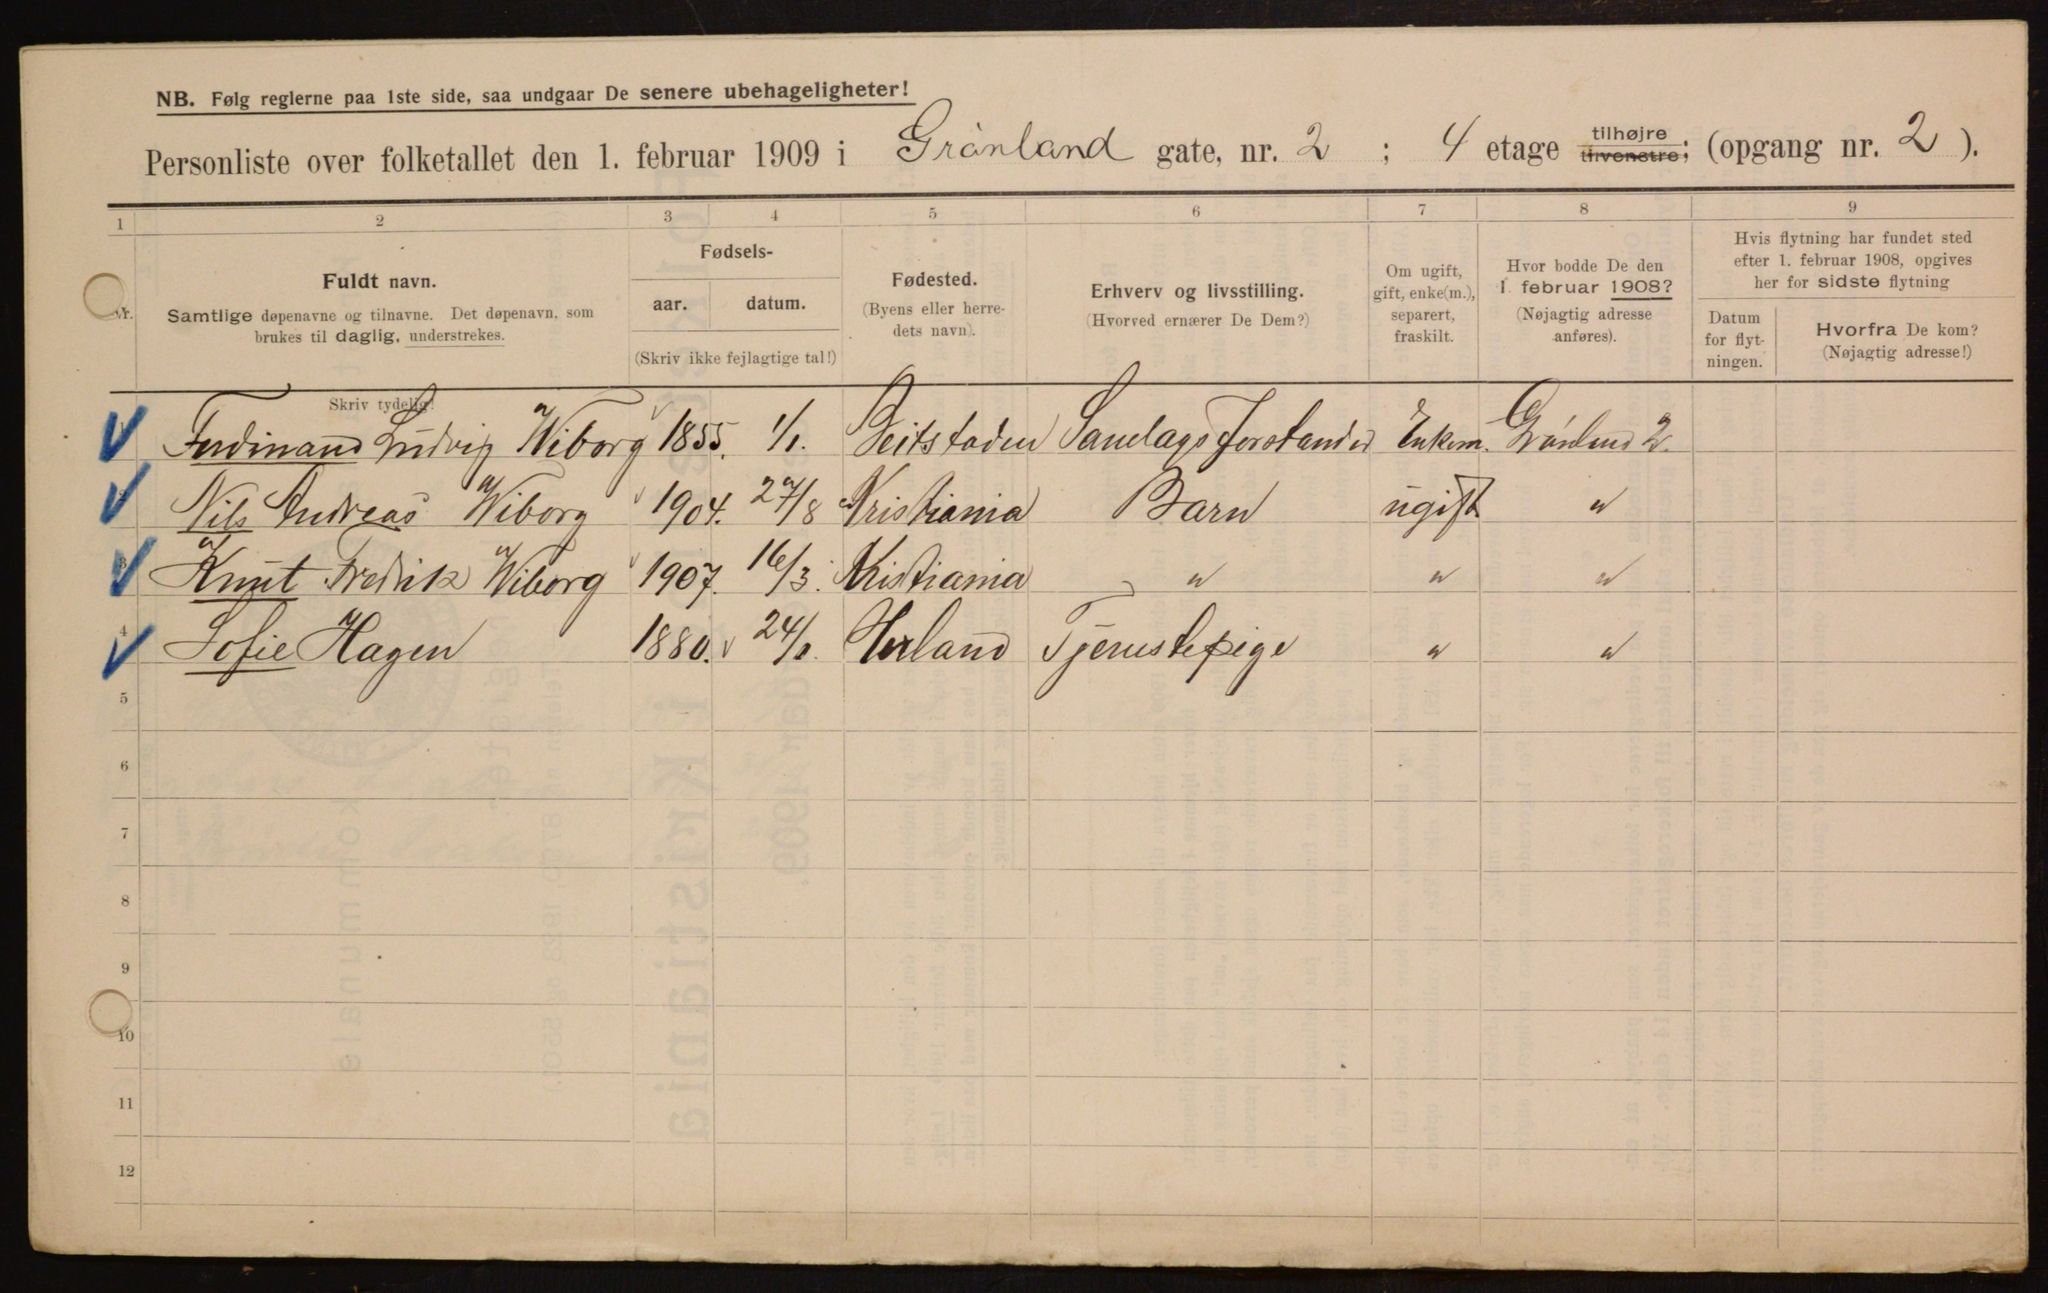 NB. Følg reglerne paa 1ste side, saa undgaar De senere ubehageligheter!
Personliste over folketallet den 1. februar 1909 i Grønland gate, nr. 2 ; 4 etage tilhøjre tilvenstre; (opgang nr. 2 ).
1 2 3 4 5 6 7 8 9
Nr.
Fuldt navn.
Samtlige døpenavne og tilnavne. Det døpenavn, som
brukes til daglig, understrekes.
Skriv tydelig!
Fødsels-
aar. datum.
(Skriv ikke fejlagtige tal!)
Fødested.
(Byens eller herre-
dets navn).
Erhverv og livsstilling.
(Hvorved ernærer De Dem?)
Om ugift,
gift, enke(m.),
separert,
fraskilt.
Hvor bodde De den
1. februar 1908?
(Nøjagtig adresse
anføres).
Hvis flytning har fundet sted
efter 1. februar 1908, opgives
her for sidste flytning
Datum
for flyt-
ningen.
Hvorfra De kom?
(Nøjagtig adresse!)
Ferdinand Ludvig Wiborg 1855. 1/1. Beitstaden Forstander Enkem. Grønland 2.
2 Nils Andreas Wiborg 1904. 27/8 Kristiania Barn ugift "
3 Knut Fredrik Wiborg 1907. 16/3. Kristiania " " "
4 Sofie Hagen 1880. 24/1. Tjenestepige " "
5
6
7
8
9
10
11
12